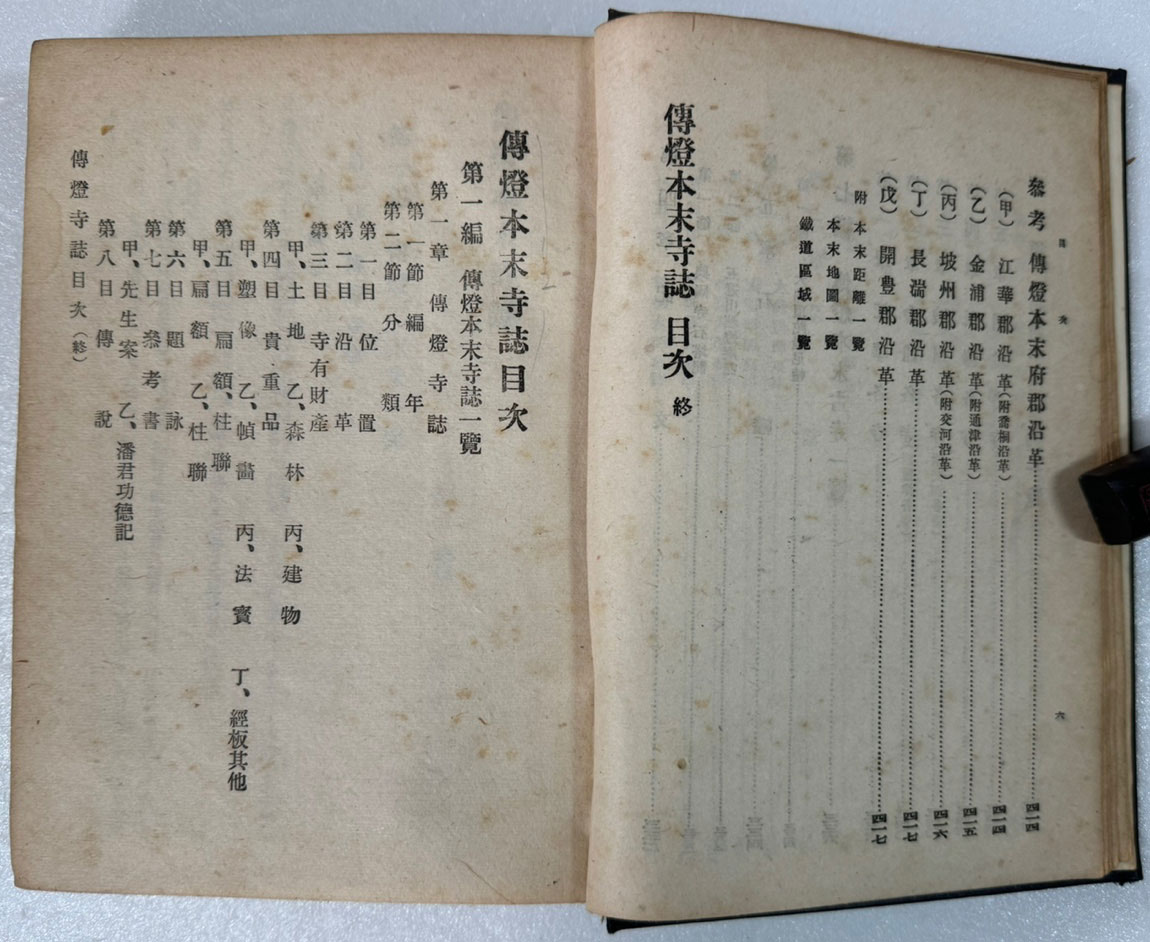 目次
六
參考 傳燈本末府郡沿革 四一四
(甲) 江華郡沿革(附喬桐沿革) 四一四
(乙) 金浦郡沿革(附通津沿革) 四一五
(丙) 坡州郡沿革(附交河沿革) 四一六
(丁) 長湍郡沿革 四一七
(戊) 開豊郡沿革 四一七
附 本末距離一覽
本末地圖一覽
鐵道區域一覽
傳燈本末寺誌 目次 終
傳燈本末寺誌目次
第一編 傳燈本末寺誌一覽
第一章 傳燈寺誌
第一節 編年
第二節 分類
第一目 位置
第二目 沿革
第三目 寺有財產
甲、土地 乙、森林 丙、建物
第四目 貴重品
甲、塑像 乙、幀畵 丙、法寶 丁、經板其他
第五目 扁額、柱聯
甲、扁額 乙、柱聯
第六目 題詠
第七目 叅考書
甲、先生案 乙、潘君功德記
第八目 傳說
傳燈寺誌目次(終)